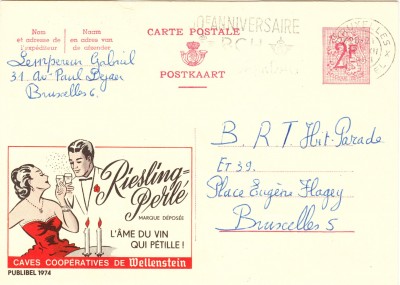 Nom et adresse de l'expéditeur
Naam en adres van de afzender
CARTE POSTALE
POSTKAART
ANNIVERSAIRE
2F
Lempereur Gabriel
31. Av. Paul Dejaer
Bruxelles 6.
B.R.T Hit-Parade
ET 39.
Place Eugène Flagey
Bruxelles 5
Riesling-
Perlé
MARQUE DÉPOSÉE
L'ÂME DU VIN
QUI PÉTILLE !
CAVES COOPÉRATIVES DE Wellenstein
PUBLIBEL 1974